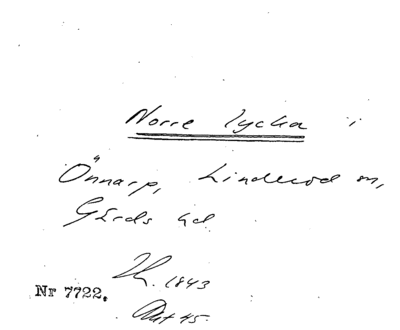 Norre lycka i
Önnarp, Linderöd sn,
Gärds hd
1843
Nr 7722.
Akt 45.